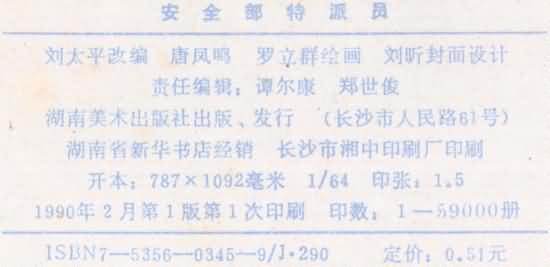 安全部特派员
刘太平改编 唐凤鸣 罗立群绘画 刘昕封面设计
责任编辑：谭尔康 郑世俊
湖南美术出版社出版、发行 （长沙市人民路61号）
湖南省新华书店经销 长沙市湘中印刷厂印刷
开本：787×1092毫米 1/64 印张：1.5
1990年2月第1版第1次印刷 印数：1—59000册
ISBN7—5356—0345—9/J·290 定价：0.51元